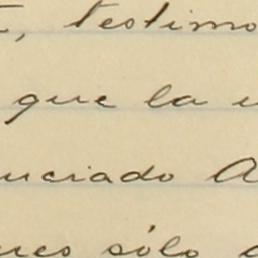 , testimo
que la
nciado A
sólo